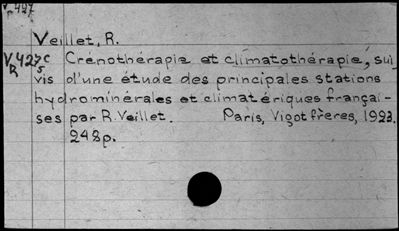 V 427
Veillet, R.
V 427c Crénothérapie et climatothérapie, sui-
R 5 vis d'une étude des principales stations
hydrominérales et climatériques françai-
ses par R. Veillet. Paris, Vigot frères, 1923.
248p.